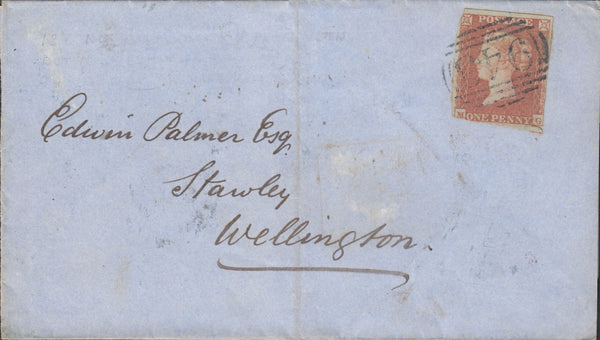 POSTAGE
M ONE PENNY G
Edwin Palmer Esq.
Stawley
Wellington.